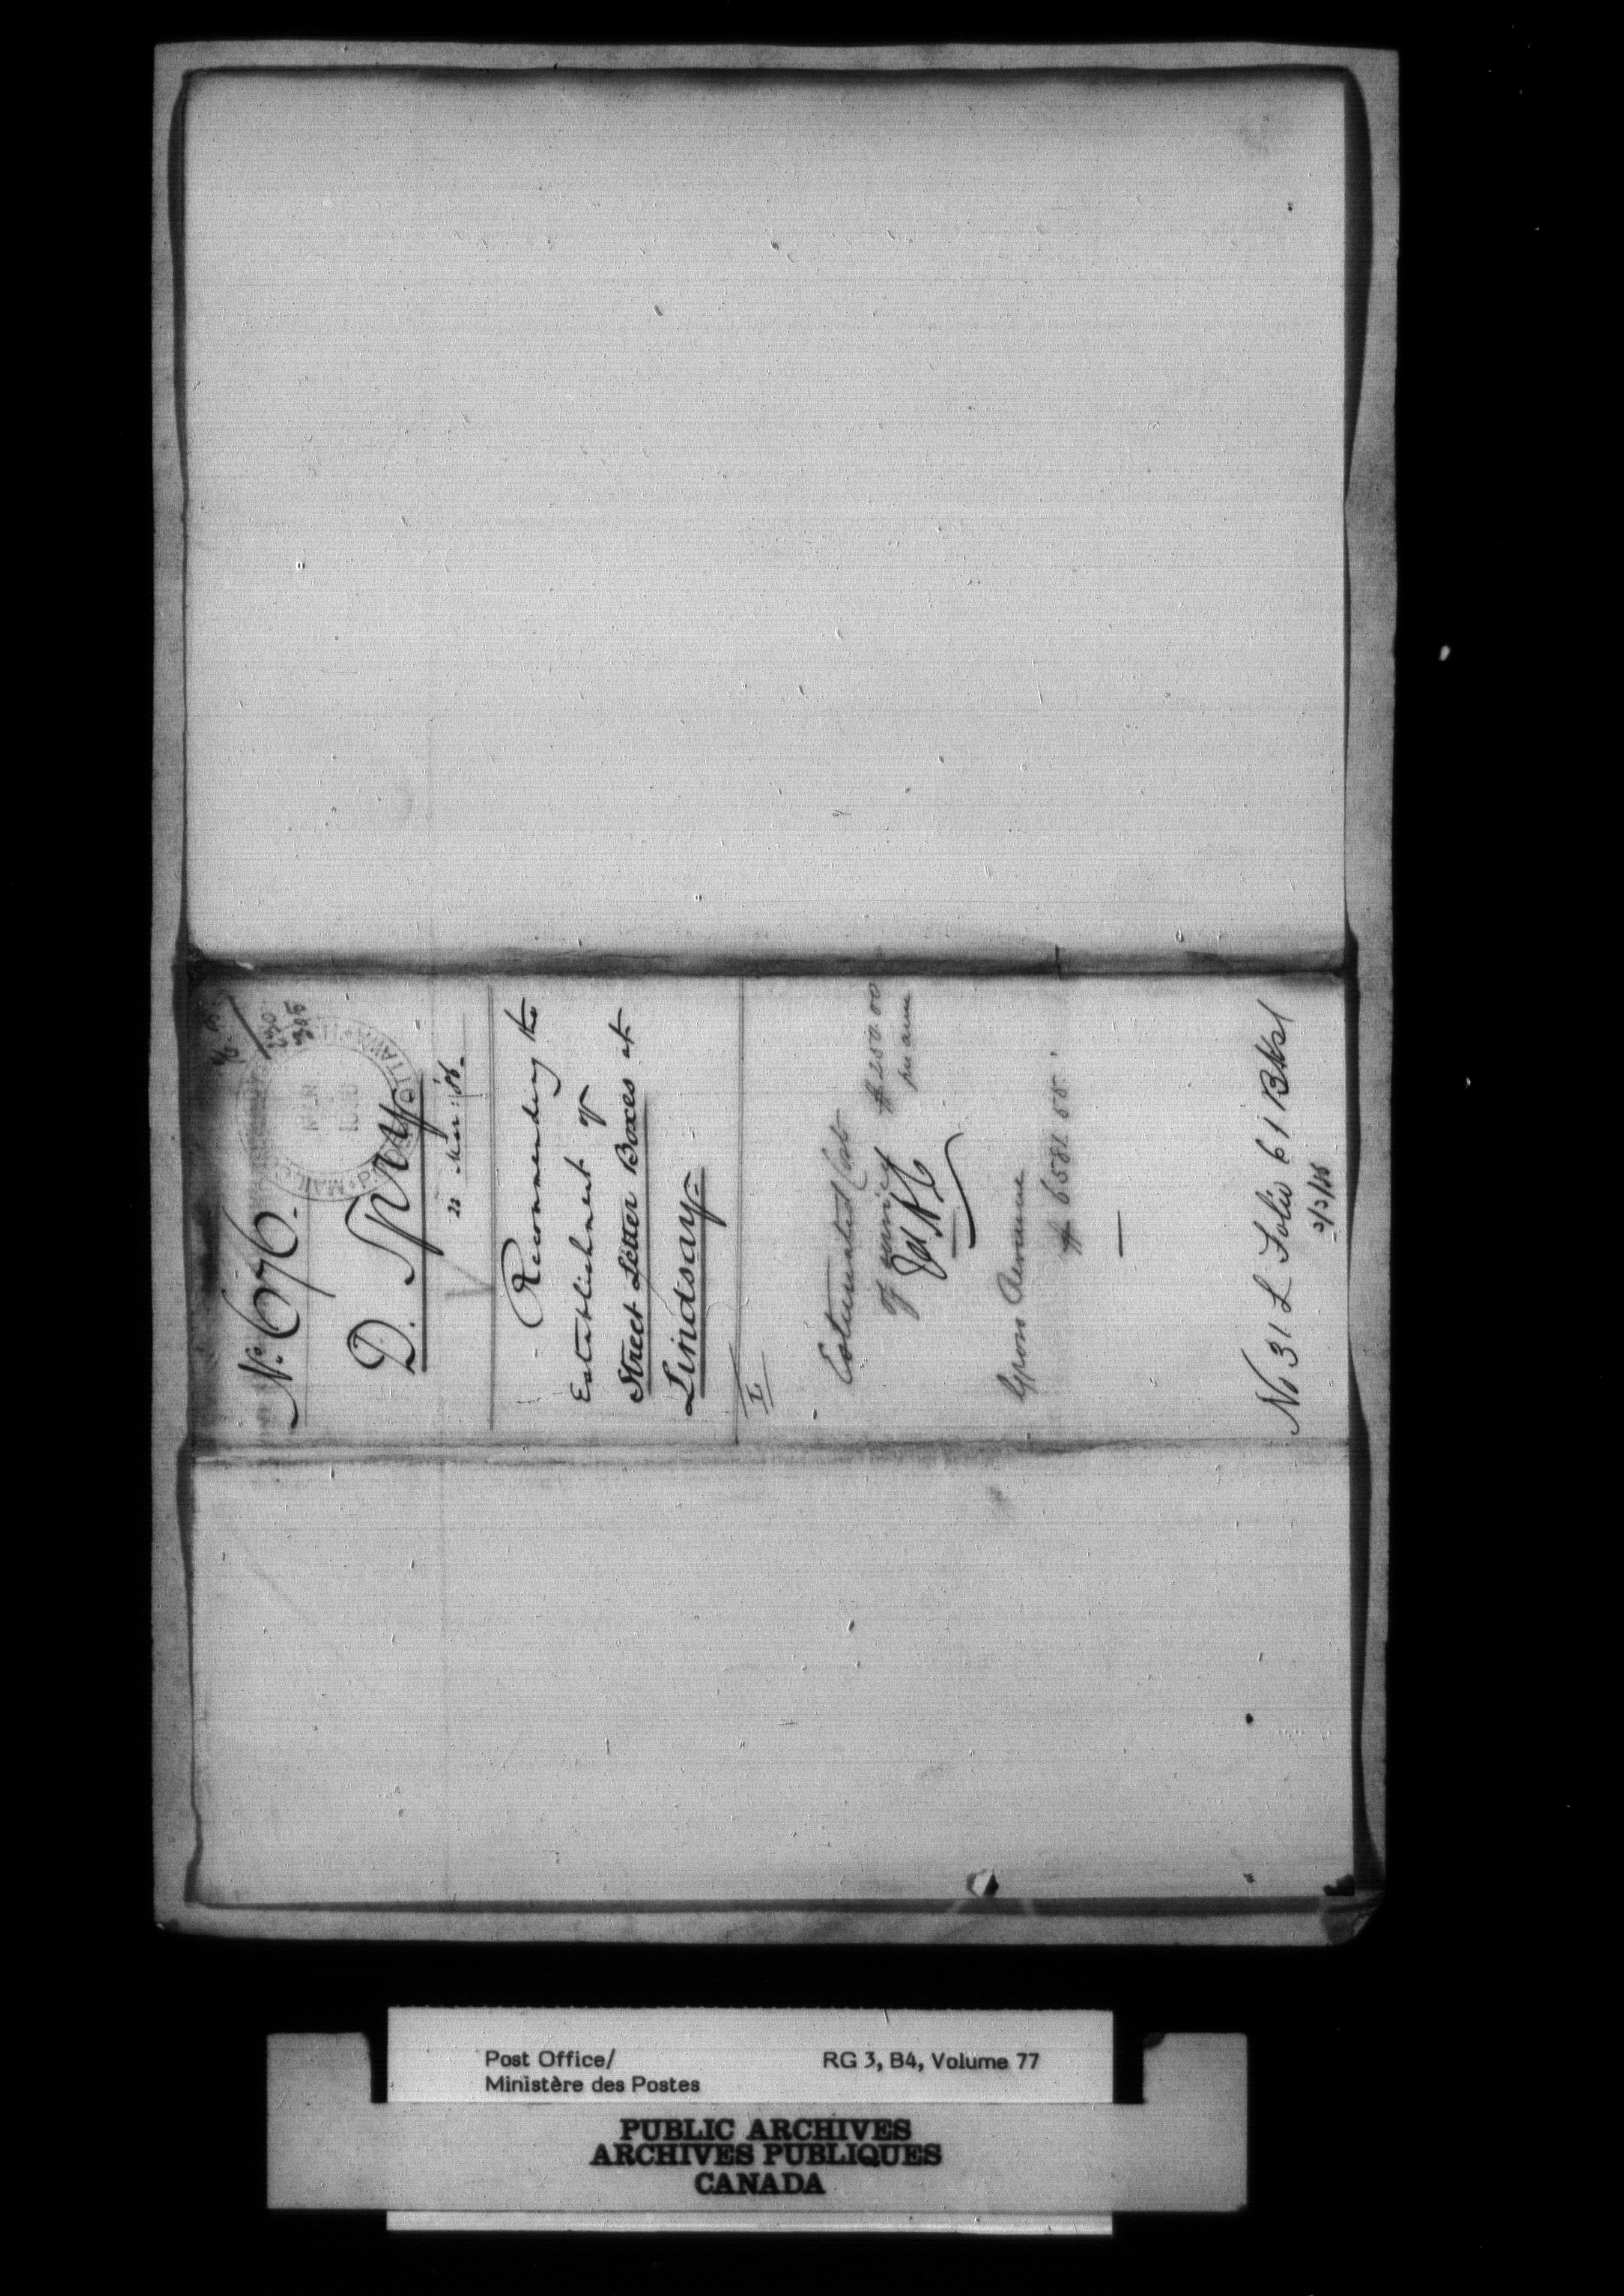 No. 676.
MAR
OTTAWA
D. Spry
22 Mar: '86.
Recommending the
Establishment of
Street Letter Boxes at
Lindsay.
L
Estimated Cost
of service $250.00
per ann
Gross Revenue
$6581.55.
No 31 L Folio 61 Bk
Post Office/
Ministère des Postes
RG 3, B4, Volume 77
PUBLIC ARCHIVES
ARCHIVES PUBLIQUES
CANADA